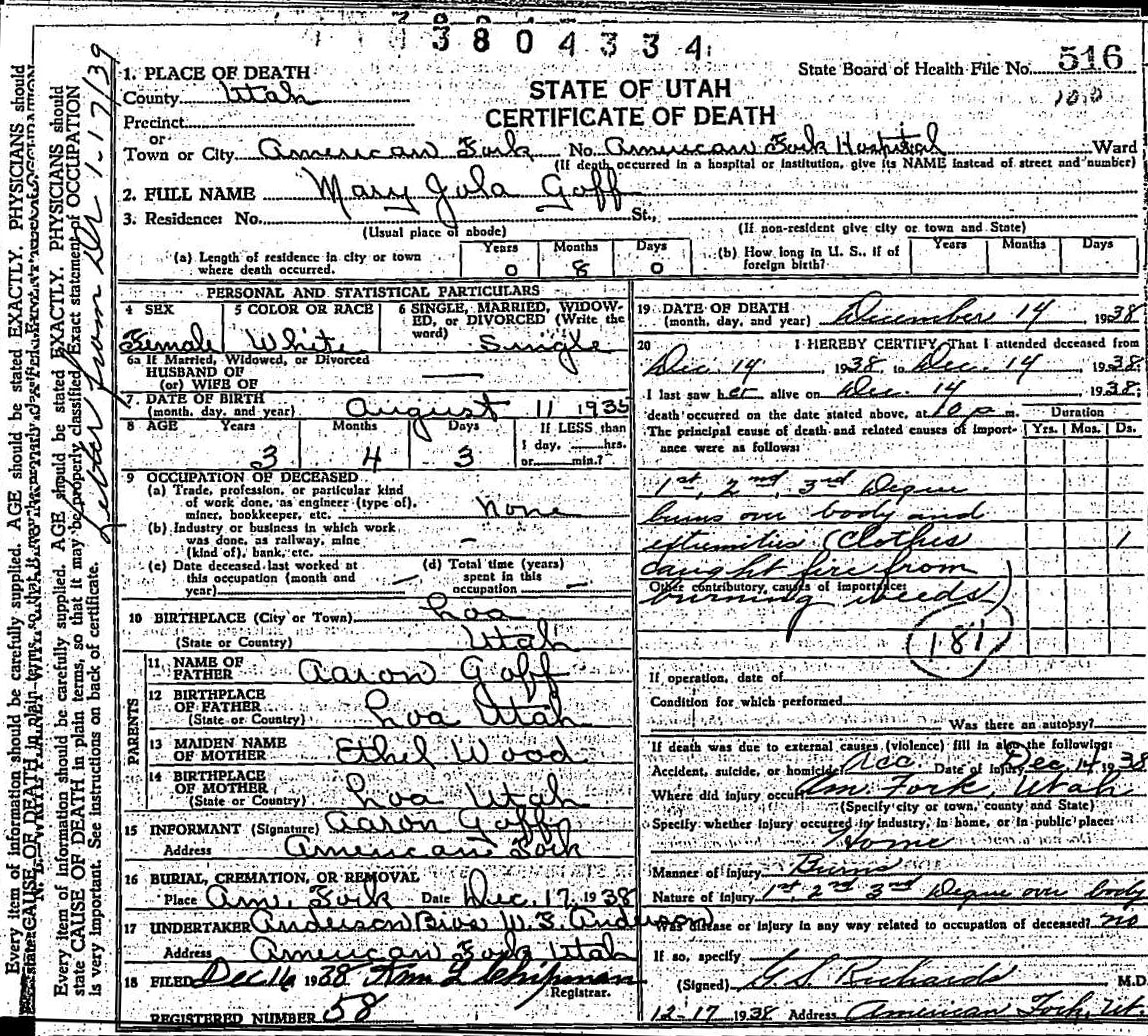 3804334
State Board of Health File No. 516
100
STATE OF UTAH
CERTIFICATE OF DEATH
1. PLACE OF DEATH
County Utah
Precinct
or
Town or City American Fork No. American Fork Hospital Ward
(If death occurred in a hospital or institution, give its NAME instead of street and number)
2. FULL NAME Mary Jola Goff
3. Residence: No. St.,
(Usual place of abode) (If non-resident give city or town and State)
(a) Length of residence in city or town where death occurred. Years 0 Months 8 Days 0
(b) How long in U. S., if of foreign birth? Years Months Days
PERSONAL AND STATISTICAL PARTICULARS
4 SEX Female
5 COLOR OR RACE White
6 SINGLE, MARRIED, WIDOWED, or DIVORCED (Write the word) Single
6a If Married, Widowed, or Divorced
HUSBAND OF
(or) WIFE OF
7 DATE OF BIRTH
(month, day, and year) August 11 1935
8 AGE Years 3 Months 4 Days 3
If LESS than 1 day, hrs. or min.?
9 OCCUPATION OF DECEASED
(a) Trade, profession, or particular kind of work done, as engineer (type of), miner, bookkeeper, etc. none
(b) Industry or business in which work was done, as railway, mine (kind of), bank, etc. -
(c) Date deceased last worked at this occupation (month and year) -
(d) Total time (years) spent in this occupation -
10 BIRTHPLACE (City or Town) Loa
(State or Country) Utah
PARENTS
11 NAME OF FATHER Aaron Goff
12 BIRTHPLACE OF FATHER
(State or Country) Loa Utah
13 MAIDEN NAME OF MOTHER Ethel Wood
14 BIRTHPLACE OF MOTHER
(State or Country) Loa Utah
15 INFORMANT (Signature) Aaron Goff
Address American Fork
16 BURIAL, CREMATION, OR REMOVAL
Place Am. Fork Date Dec. 17, 1938
17 UNDERTAKER Anderson Bros W. S. Anderson
Address American Fork Utah
18 FILED Dec 16 1938 Wm L Chipman
Registrar.
REGISTERED NUMBER 58
19 DATE OF DEATH
(month, day, and year) December 14 1938
20 I HEREBY CERTIFY, That I attended deceased from
Dec. 14 1938, to Dec. 14, 1938
I last saw her alive on Dec. 14 1938;
death occurred on the date stated above, at 10 p m.
The principal cause of death and related causes of importance were as follows:
Duration
Yrs. Mos. Ds.
1st, 2nd, 3rd Degree
burns over body and
extremities (Clothes 1
caught fire from
Other contributory causes of importance:
burning weeds)
181
If operation, date of
Condition for which performed
Was there an autopsy?
If death was due to external causes (violence) fill in also the following:
Accident, suicide, or homicide Acc. Date of injury Dec 14 1938
Where did injury occur Am. Fork, Utah
(Specify city or town, county and State)
Specify whether injury occurred in industry, in home, or in public place:
Home
Manner of injury Burns
Nature of injury 1st, 2nd 3rd Degree over body
Was disease or injury in any way related to occupation of deceased? no
If so, specify
(Signed) G. S. Richards M.D.
12-17 1938 Address American Fork, Ut
Every item of information should be carefully supplied. AGE should be stated EXACTLY. PHYSICIANS should
Every item of information should be carefully supplied. AGE should be stated EXACTLY. PHYSICIANS should
state CAUSE OF DEATH in plain terms, so that it may be properly classified. Exact statement of OCCUPATION
is very important. See instructions on back of certificate.
Letter from Dr 1-17/39